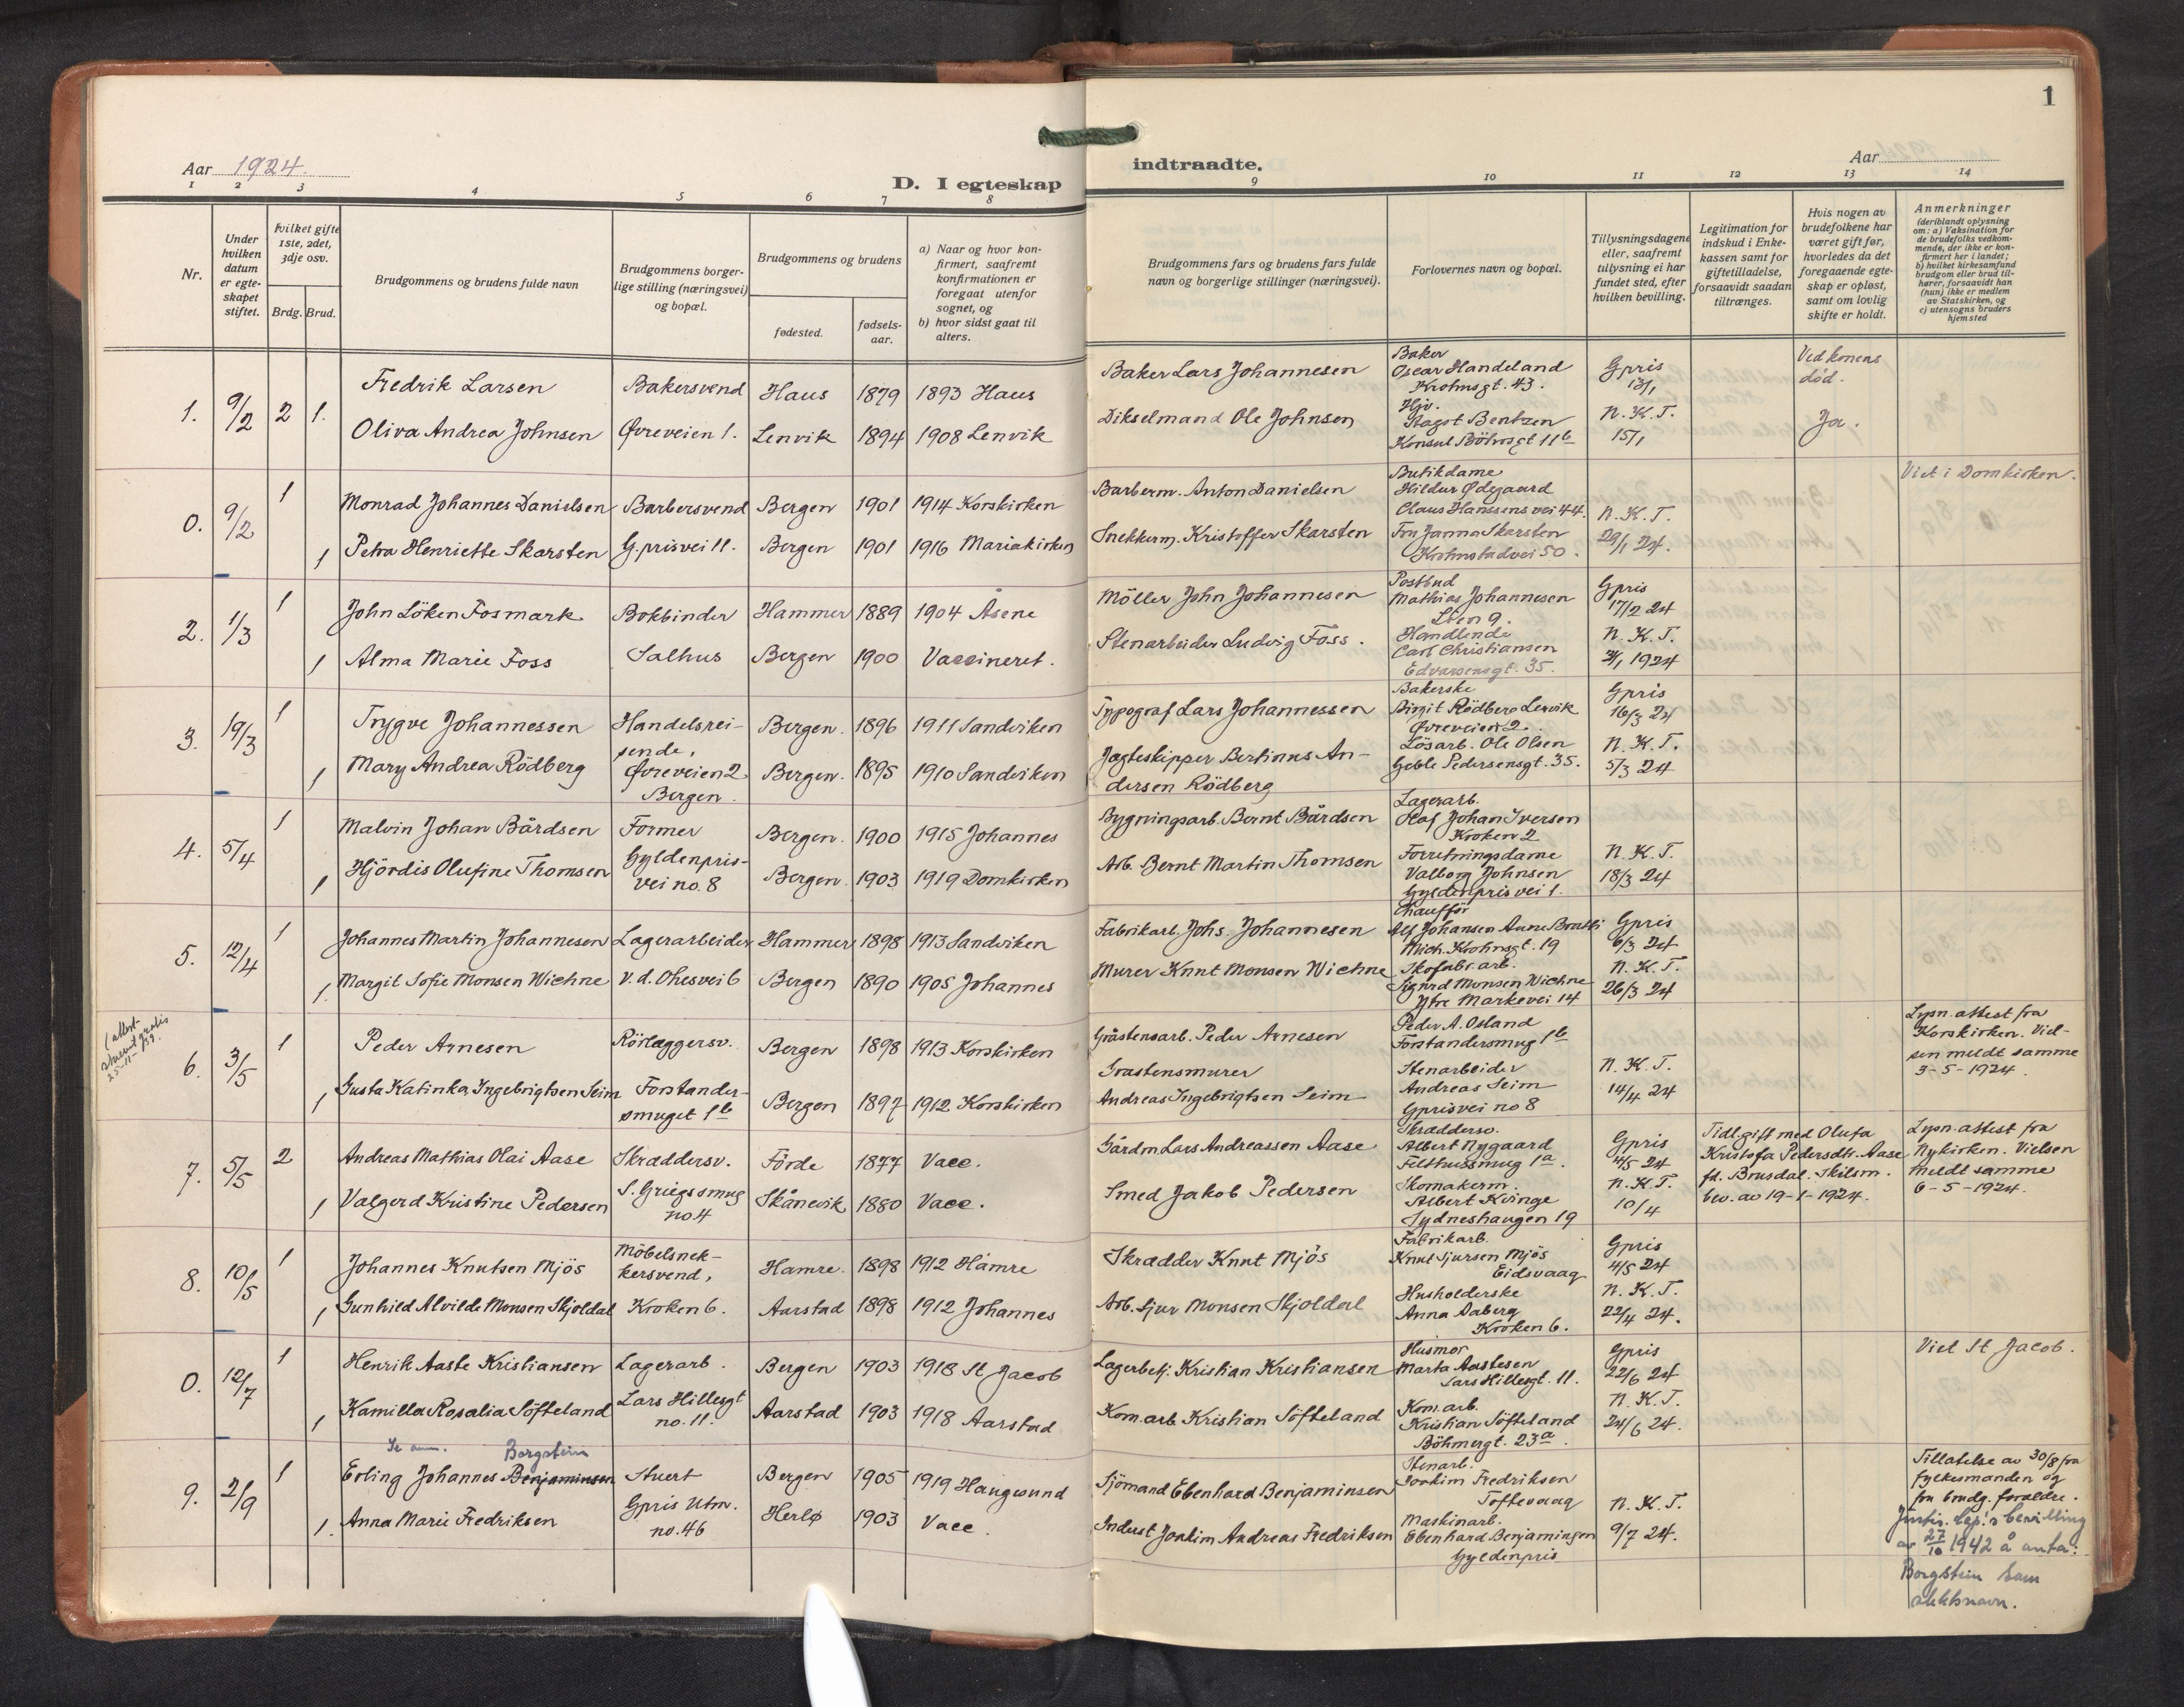 Aar 1924.
D. I egteskap
indtraadte.
Aar
1
1 2 3 4 5 6 7 8 9 10 11 12 13 14
Nr.
Under hvilken datum er egteskapet stiftet.
Hvilket gifte 1ste, 2det, 3dje osv.
Brdg. Brud.
Brudgommens og brudens fulde navn
Brudgommens borgerlige stilling (næringsvei) og bopæl.
Brudgommens og brudens
fødested.
fødselsaar.
a) Naar og hvor konfirmert, saafremt konfirmationen er foregaat utenfor sognet, og
b) hvor sidst gaat til alters.
Brudgommens fars og brudens fars fulde navn og borgerlige stillinger (næringsvei).
Forlovernes navn og bopæl.
Tillysningsdagene eller, saafremt tillysning ei har fundet sted, efter hvilken bevilling.
Legitimation for indskud i Enkekassen samt for giftetilladelse, forsaavidt saadan tiltrænges.
Hvis nogen av brudefolkene har været gift før, hvorledes da det foregaaende egteskap er opløst, samt om lovlig skifte er holdt.
Anmerkninger
(deriblandt oplysning om: a) Vaksination for de brudefolks vedkommende, der ikke er konfirmert her i landet; b) hvilket kirkesamfund brudgom eller brud tilhører, forsaavidt han (hun) ikke er medlem av Statskirken, og c) utensogns bruders hjemsted
1. 9/2 2 1.
Fredrik Larsen Bakersvend Haus 1879 1893 Haus
Oliva Andrea Johnsen Øvreveien 1. Lenvik 1894 1908 Lenvik
Baker Lars Johannesen
Dikselmand Ole Johnsen
Baker
Oscar Handeland
Krohnsgt. 43.
Hjv.
Dagot Bentzen
Konsul Böhmsgt 11b
Gpris
13/1
N.K.T.
15/1
Ved konens
død.
Ja.
0. 9/2 1 1
Monrad Johannes Danielsen Barbersvend Bergen 1901 1914 Korskirken
Petra Henriette Skarsten G.prisvei 11. Bergen 1901 1916 Mariakirken
Barberm. Anton Danielsen
Snekkerm. Kristoffer Skarsten
Butikdame
Hildur Ødegaard
Claus Hanssens vei 44.
Fru Janna Skarsten
Krohnstadvei 50.
N.K.T.
29/1 24.
Viet i Domkirken.
2. 1/3 1 1
John Löken Fosmark Bokbinder Hammer 1889 1904 Åsene
Alma Marie Foss Salhus Bergen 1900 Vaccineret.
Möller John Johannesen
Stenarbeider Ludvig Foss.
Postbud
Mathias Johannesen
Lien 9.
Handlende
Carl Christiansen
Edvardsensgt. 35.
Gpris
17/2 24
N.K.T.
31/1 1924
3. 19/3 1 1
Trygve Johannessen Handelsrei- Bergen. 1896 1911 Sandviken
sende,
Mary Andrea Rödberg Øvreveien 2 Bergen. 1895 1910 Sandviken
Bergen.
Typograf Lars Johannessen
Jægteskipper Bertinus An-
dersen Rödberg
Bakerske
Birgit Rödberg Lervik
Øvreveien 2.
Lösarb. Ole Olsen
Geble Pedersensgt. 35.
Gpris
16/3 24
N.K.T.
5/3 24
4. 5/4 1 1
Malvin Johan Bårdsen Former Bergen. 1900 1915 Johannes
Hjördis Olufine Thomsen Gyldenpris- Bergen. 1903 1919 Domkirken
vei no. 8
Bygningsarb. Bernt Bårdsen
Arb. Bernt Martin Thomsen
Lagerarb.
Olaf Johan Iversen
Kroken 2
Forretningsdame
Valborg Johnsen
Gyldenprisvei 1.
N.K.T.
18/3 24
5. 12/4 1 1.
Johannes Martin Johannesen Lagerarbeider Hammer 1898 1913 Sandviken
Margit Sofie Monsen Wichne v.d. Ohesvei 6 Bergen 1890 1905 Johannes
Fabrikarb. Johs. Johannesen
Murer Knut Monsen Wichne
Chauffør
Alf Johansen
Mich. Krohnsgt. 19
Skofabr. arb.
Sigurd Monsen Wichne
Ytre Markevei 14
Gpris
6/3 24
N.K.T.
26/3 24
6. 3/5 1 1
Peder Arnesen Rörlæggersv. Bergen 1898 1913 Korskirken
Gusta Katinka Ingebrigtsen Seim Forstander- Bergen 1897 1912 Korskirken
smuget 1b
Gråstensarb. Peder Arnesen
Graastensmurer
Andreas Ingebrigtsen Seim
Peder A. Osland
Forstandersmug 1b
Stenarbeider
Andreas Seim
Gprisvei no 8
N.K.T.
14/4 24
Lysn. attest fra
Korskirken. Viel-
sen meldt samme
3-5-1924.
7. 5/5 2 1
Andreas Mathias Olai Aase Skræddersv. Förde 1877 Vacc.
Valgerd Kristine Pedersen S. Griegssmug Skånevik 1880 Vacc.
no 4
Gårdm. Lars Andreassen Aase
Smed Jakob Pedersen
Skræddersv.
Albert Nygaard
Felthussmug 1a.
Skomakerm.
Albert Kvinge
Sydneshaugen 19
Gpris
4/5 24
N.K.T.
10/4
Tidl. gift med Olufa
Kristofa Pedersdtr. Aase
fd. Brusdal. Skilsm.
bev. av 19-1-1924.
Lysn. attest fra
Nykirken. Vielsen
meldt samme
6-5-1924.
8. 10/5 1 1
Johannes Knutsen Mjös Möbelsnek- Hamre. 1898 1912 Hamre
kersvend,
Gunhild Alvilde Monsen Skjoldal Kroken 6. Aarstad 1898 1912 Johannes
Skrædder Knut Mjös
Arb. Sjur Monsen Skjoldal
Fabrikarb.
Knut Sjursen Mjös
Eidsvaag
Husholderske
Anna Aaberg
Kroken 6.
Gpris
4/5 24
N.K.T.
22/4 24.
0. 12/7 1 1
Henrik Aaste Kristiansen Lagerarb. Bergen 1903 1918 St Jacob
Kamilla Rosalia Söfteland Lars Hillesgt Aarstad 1903 1918 Aarstad
no. 11.
Lagerbetj. Kristian Kristiansen
Kom. arb Kristian Söfteland
Husmor
Marta Aastesen
Lars Hillesgt. 11.
Kom. arb.
Kristian Söfteland
Böhmergt. 23a.
Gpris
22/6 24
N.K.T.
24/6 24.
Viet St Jacob.
Se anm. Borgstein
9. 2/9 1 1.
Erling Johannes Benjaminsen Stuert Bergen 1905 1919 Haugesund
Anna Marie Fredriksen Gpris Utm. Herlø 1903 Vacc.
no. 46
Sjömand Ebenhard Benjaminsen
Indust Joakim Andreas Fredriksen
Stenarb.
Joakim Fredriksen
Toftevaag
Maskinarb.
Ebenhard Benjaminsen
Gyldenpris
N.K.T.
9/7 24.
Tillatelse av 30/8 fra
fylkesmanden og
fra brudg. forældre.
Justis. dep.'s bevilling
av 27/10 1942 å anta:
Borgstein som
slektsnavn.